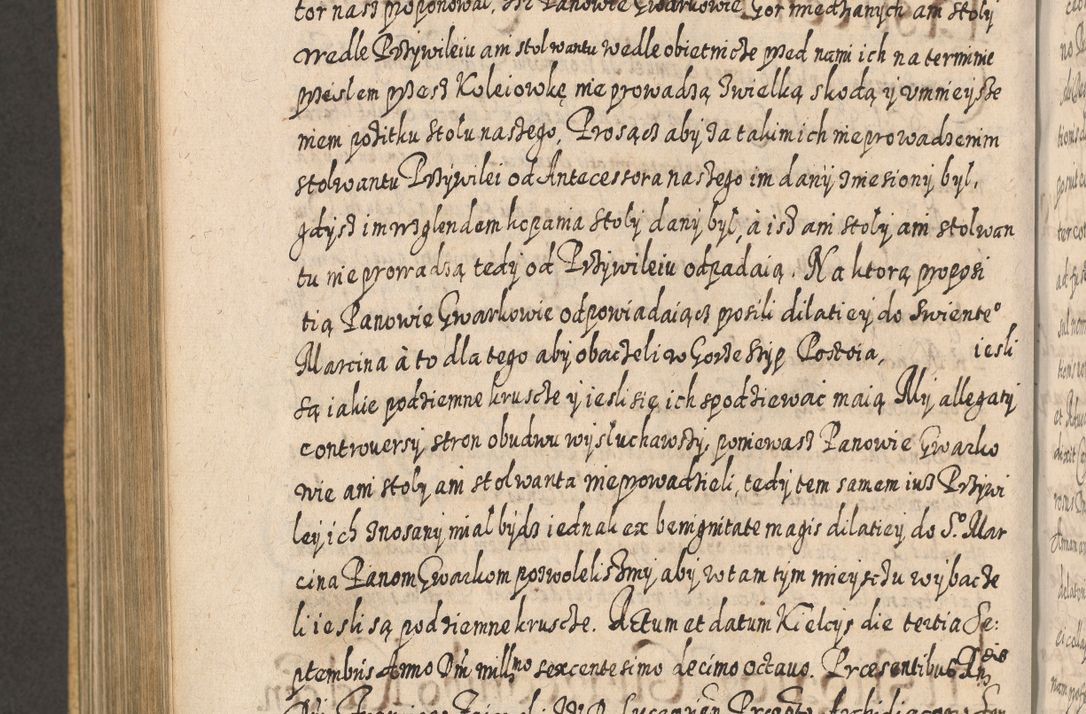 tor nasz proponował, Jsz Panowie Gwarkowie Gor miedzianych ani stoły
wedle Przÿwileiu ani stolwantu wedle obietnicze przed nami ich na terminie
przeslem przesz Koleiowkę nie prowadzą z wielką skodą ÿ vmnieÿsze
niem pożitku stołu naszego, Prosącz abÿ za takim ich nie prowadzenim
stolwantu Przÿwilei od Antecessora naszego im danÿ zniesionÿ był,
gdÿsz im wzglendem kopania stolÿ danÿ był, à isz ani stolÿ ani stolwan
tu nie prowadzą tedÿ od Przÿwileiu odpadaią. Na ktorą proposi
tią Panowie Gwarkowie odpowiadaiącz prosili dilatieÿ do Swientego
Marcina à to dla tego abÿ obaczeli w Gorze Hÿp Postoia, iesli
są iakie podziemne kruscze ÿ iesli się ich spodziewać maią Mÿ allegatÿ
controversÿ stron obudwu wÿsłuchawszÿ, poniewasz Panowie Gwarko
wie ani stolÿ ani stolwanta nie prowadzieli, tedÿ tem samem iusz Przÿwi
leÿ ich znosanÿ miał bÿdz iednak ex benignitate magis dilatieÿ do S.° Mar
cina Panom Gwarkom pozwolelismÿ, abÿ w tam tÿm mieÿsczu wÿbacze
li iesli są podziemne krusche. Actum et datum Kielcÿs die tertia Se:
ptembris Anno Dni millmo sexcentesimo decimo octavo. Præsentibus Rndis